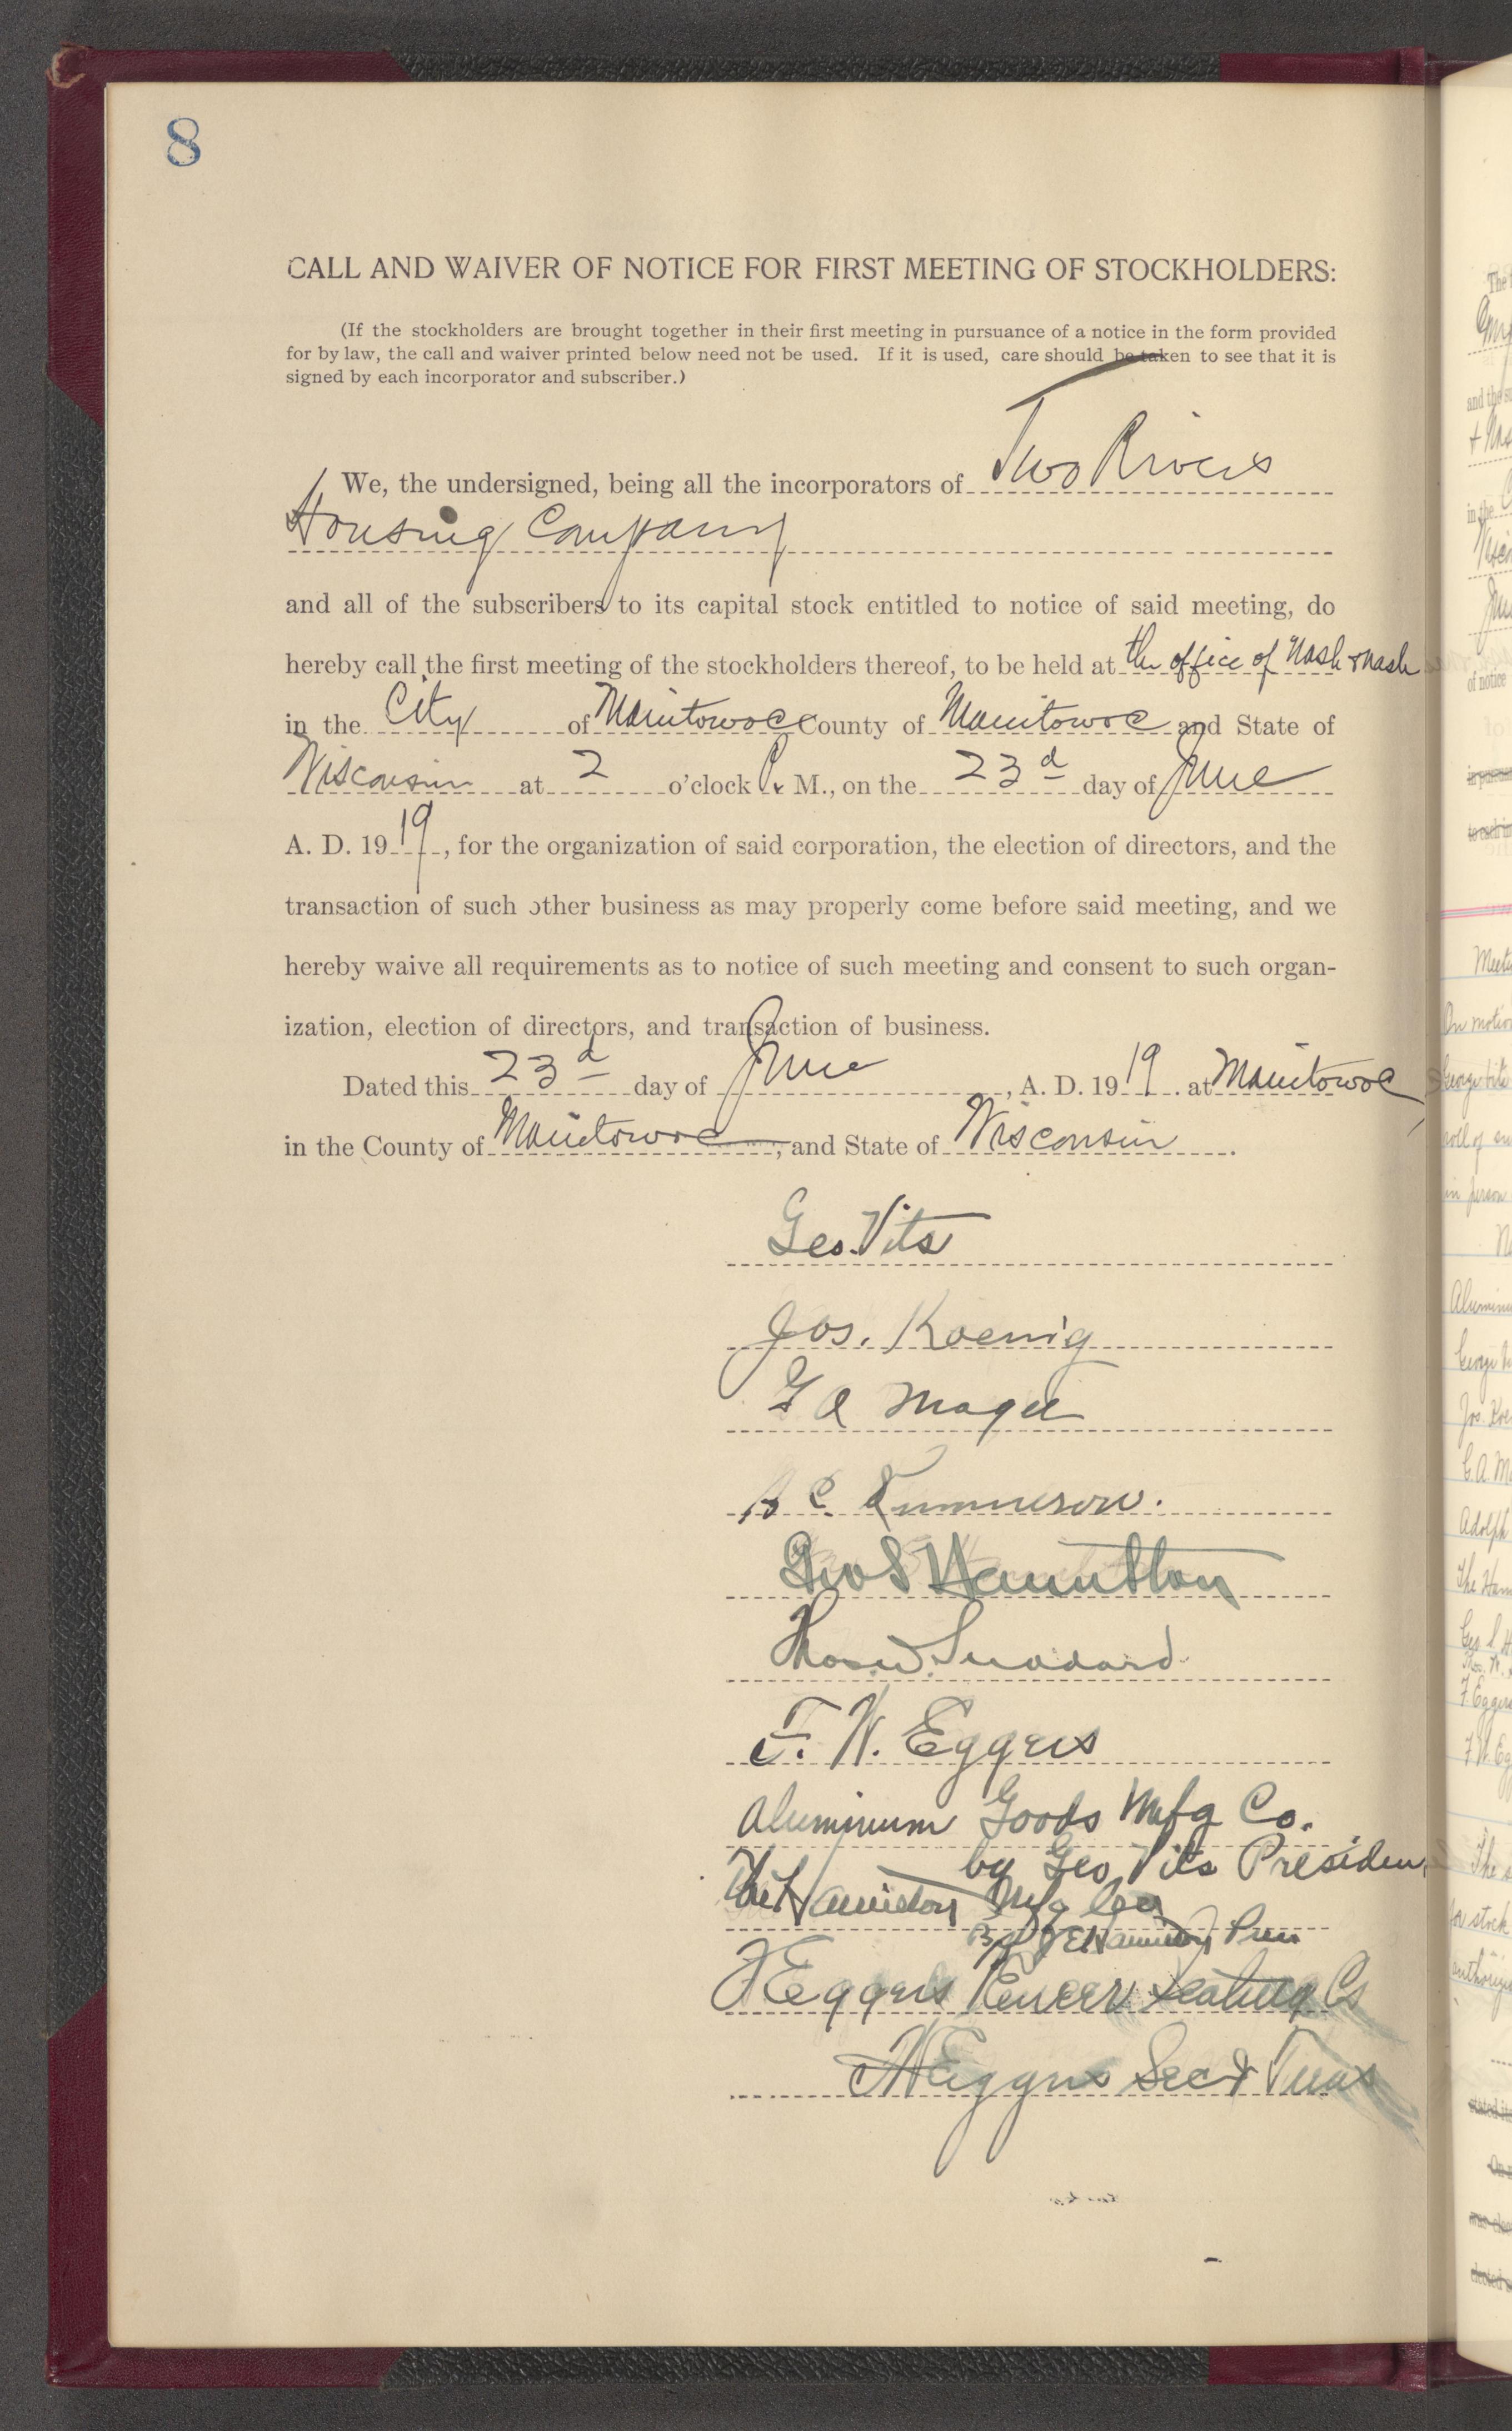 8
CALL AND WAIVER OF NOTICE FOR FIRST MEETING OF STOCKHOLDERS:
(If the stockholders are brought together in their first meeting in pursuance of a notice in the form provided
for by law, the call and waiver printed below need not be used. If it is used, care should be taken to see that it is
signed by each incorporator and subscriber.)
We, the undersigned, being all the incorporators of Two Rivers
Housing Company
and all of the subscribers to its capital stock entitled to notice of said meeting, do
hereby call the first meeting of the stockholders thereof, to be held at the office of Nash & Nash
in the City of Manitowoc County of Manitowoc and State of
Wisconsin at 2 o'clock P. M., on the 23d day of June
A. D. 1919, for the organization of said corporation, the election of directors, and the
transaction of such other business as may properly come before said meeting, and we
hereby waive all requirements as to notice of such meeting and consent to such organ-
ization, election of directors, and transaction of business.
Dated this 23d day of June, A. D. 1919. at Manitowoc
in the County of Manitowoc, and State of Wisconsin.
Geo. Vits
Jos. Koenig
G A Magee
Geo S Hamilton
Thos. W. Suddard
F. W. Eggers
Aluminum Goods Mfg Co.
by Geo Vits President
The Hamilton Mfg Co
By J E Hamilton Pres
F Eggers Veneer Seating Co
F W Eggers Sec & Treas